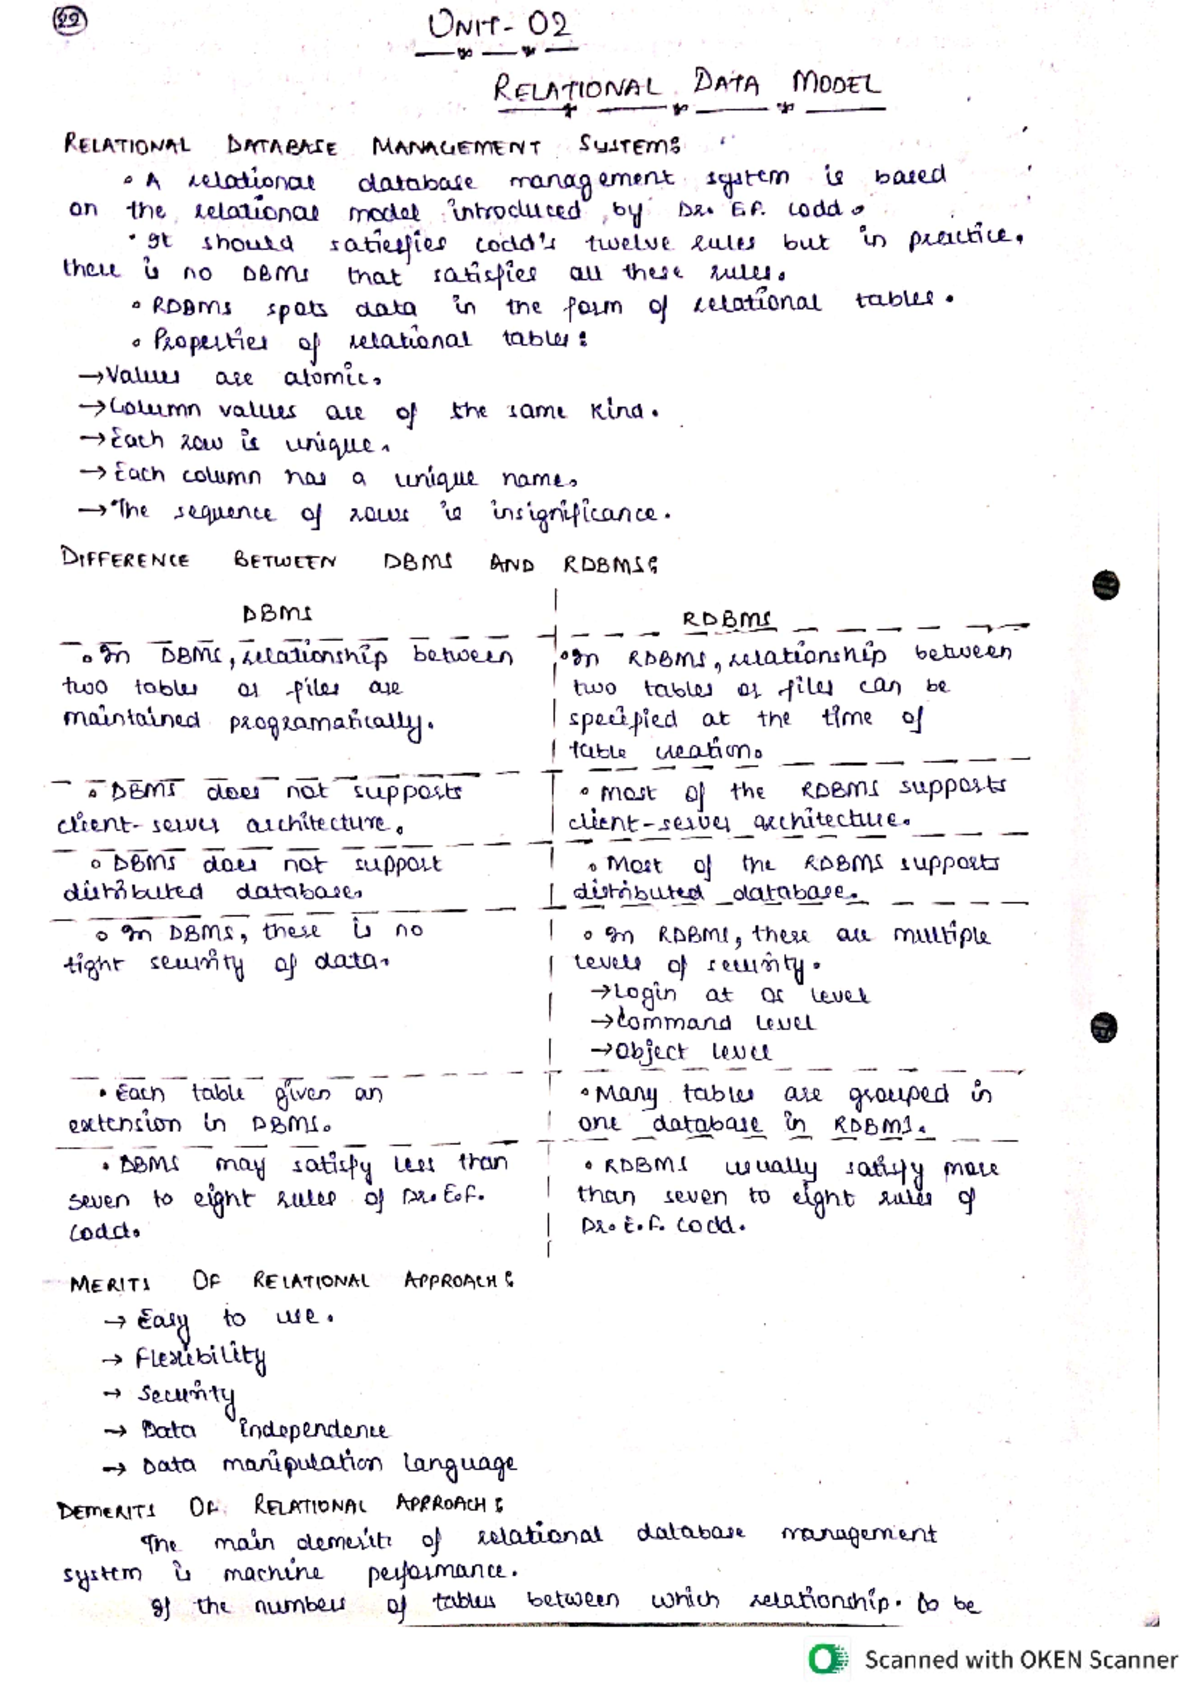 22
UNIT-02
RELATIONAL DATA MODEL
RELATIONAL DATABASE MANAGEMENT SYSTEMS
• A relational database management system is based
on the relational model introduced by Dr. E.F. Codd.
• It should satiesfies codd's twelve rules but in practice,
there is no DBMS that satisfies all these rules.
• RDBMS spots data in the form of relational tables.
• Properties of relational tables:
→Values are atomic.
→Column values are of the same kind.
→Each row is unique.
→Each column has a unique name.
→The sequence of rows is insignificance.
DIFFERENCE BETWEEN DBMS AND RDBMS:
DBMS
RDBMS
• In DBMS, relationship between
two tables or files are
maintained programatically.
• In RDBMS, relationship between
two tables or files can be
specified at the time of
table creation.
• DBMS does not supports
client-server architecture.
• Most of the RDBMS supports
client-server architecture.
• DBMS does not support
distributed database.
• Most of the RDBMS supports
distributed database.
• In DBMS, there is no
tight security of data.
• In RDBMS, there are multiple
levels of security.
→Login at OS level
→Command level
→Object level
• Each table given an
extension in DBMS.
• Many tables are grouped in
one database in RDBMS.
• DBMS may satisfy less than
seven to eight rules of Dr. E.F.
Codd.
• RDBMS usually satisfy more
than seven to eight rules of
Dr. E.F. Codd.
MERITS OF RELATIONAL APPROACH:
→ Easy to use.
→ Flexibility
→ Security
→ Data independence
→ Data manipulation language
DEMERITS OF RELATIONAL APPROACH:
The main demerit of relational database management
system is machine performance.
If the numbers of tables between which relationship. to be
Scanned with OKEN Scanner